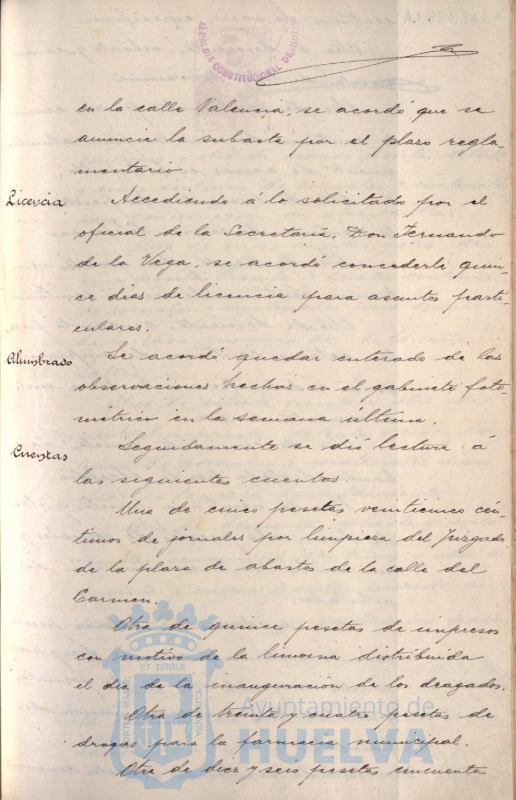 ALCALDIA CONSTITUCIONAL DE HUELVA
en la calle Valencia, se acordó que se
anuncie la subasta por el plazo regla-
mentario.
Licencia
Accediendo á lo solicitado por el
oficial de la Secretaría, Don Fernando
de la Vega, se acordó concederle quin-
ce días de licencia para asuntos parti-
culares.
Alumbrado
Se acordó quedar enterado de las
observaciones hechas en el gabinete foto-
métrico en la semana última.
Cuentas
Seguidamente se dió lectura á
las siguientes cuentas.
Una de cinco pesetas veinticinco cén-
timos de jornales por limpieza del Juzgado
de la plaza de abastos de la calle del
Carmen.
Otra de quince pesetas de impresos
con motivo de la limosna distribuida
el día de la inauguración de los dragados.
Otra de treinta y cuatro pesetas de
drogas para la farmacia municipal.
Otra de diez y seis pesetas cincuenta
Ayuntamiento de
HUELVA